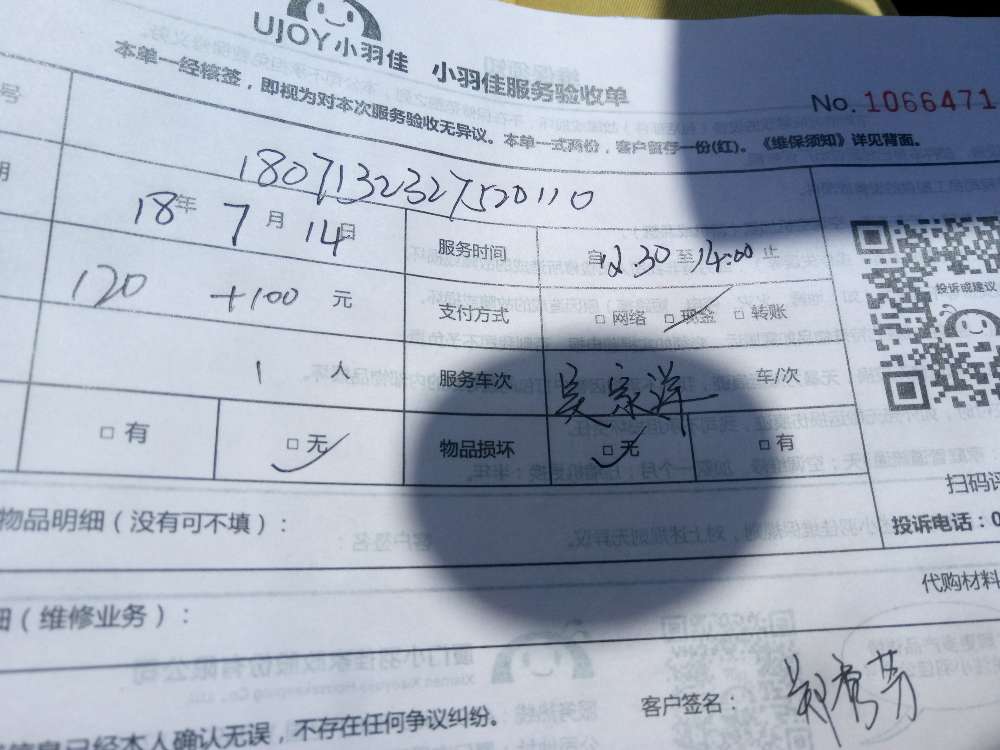 UJOY小羽佳 小羽佳服务验收单
本单一经核签，即视为对本次服务验收无异议。本单一式两份，客户留存一份(红)。《维保须知》详见背面。
No. 1066471
号
1807132327520110
18年 7 月 14日 服务时间 自12.30至14:00止
120 +100 元 支付方式 □网络 □现金 □转账
投诉或建议
1 人 服务车次 吴宗洋 车/次
□有 □无 物品损坏 □无 □有
扫码评
物品明细（没有可不填）：
投诉电话：0
代购材料
细（维修业务）：
客户签名：
已经本人确认无误，不存在任何争议纠纷。